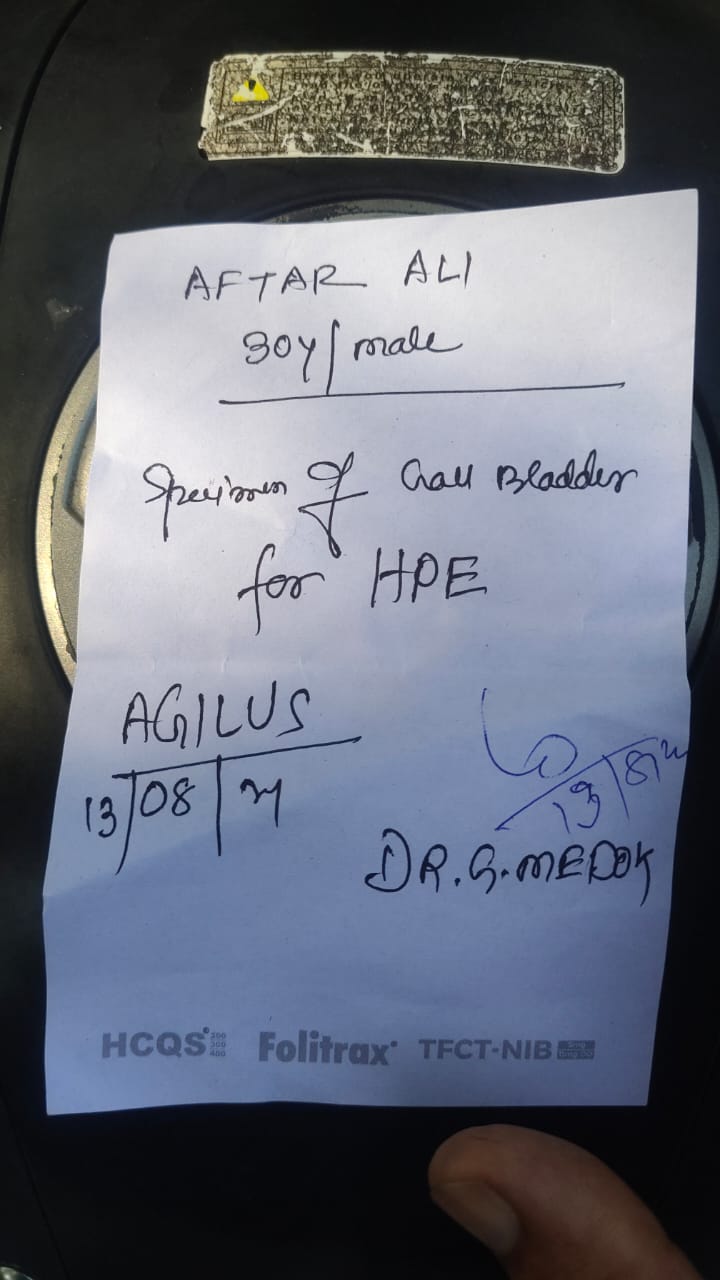 AFTAR ALI
30Y/male
Specimen of Gall Bladder
for HPE
AGILUS
13/08/24
13/8/24
DR. G. MEDOK
HCQS 200 300 400 Folitrax TFCT-NIB